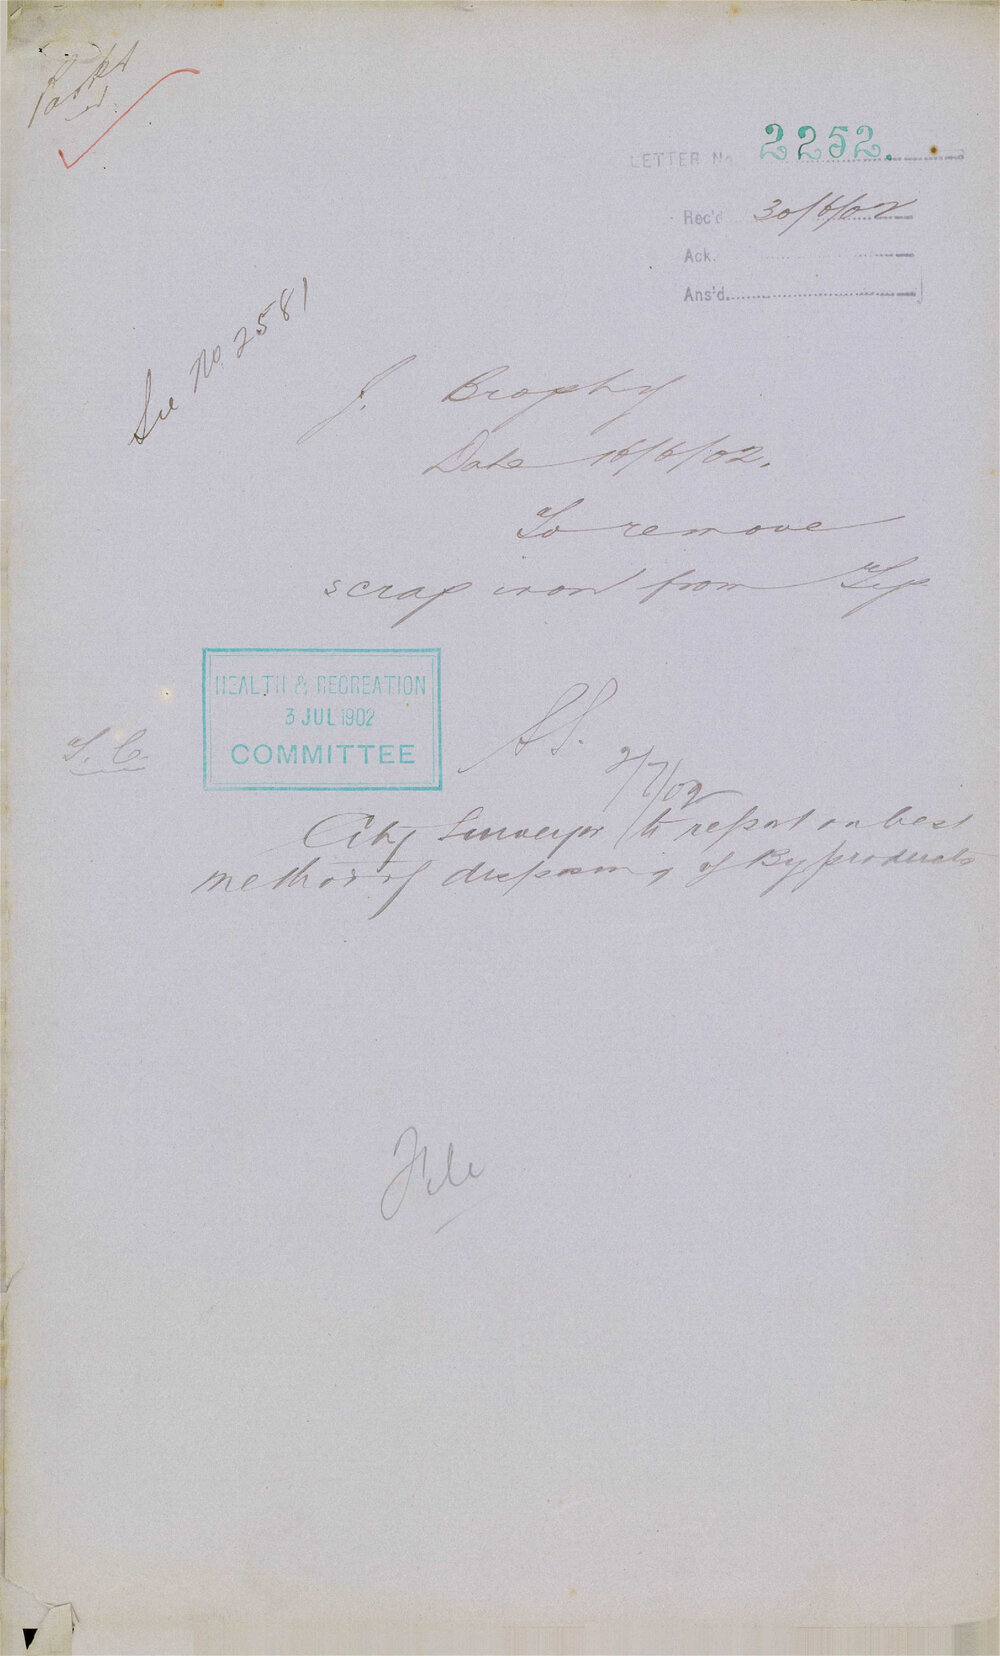 LETTER No. 2252.
Rec'd 30/6/02
Ack.
Ans'd.
See No. 2581
J. Brophy
Date 16/6/02.
To remove
scrap iron from Tip
HEALTH & RECREATION
3 JUL 1902
COMMITTEE
T. C.
2/7/02
City Surveyor to report on best
method of disposing of By products
File